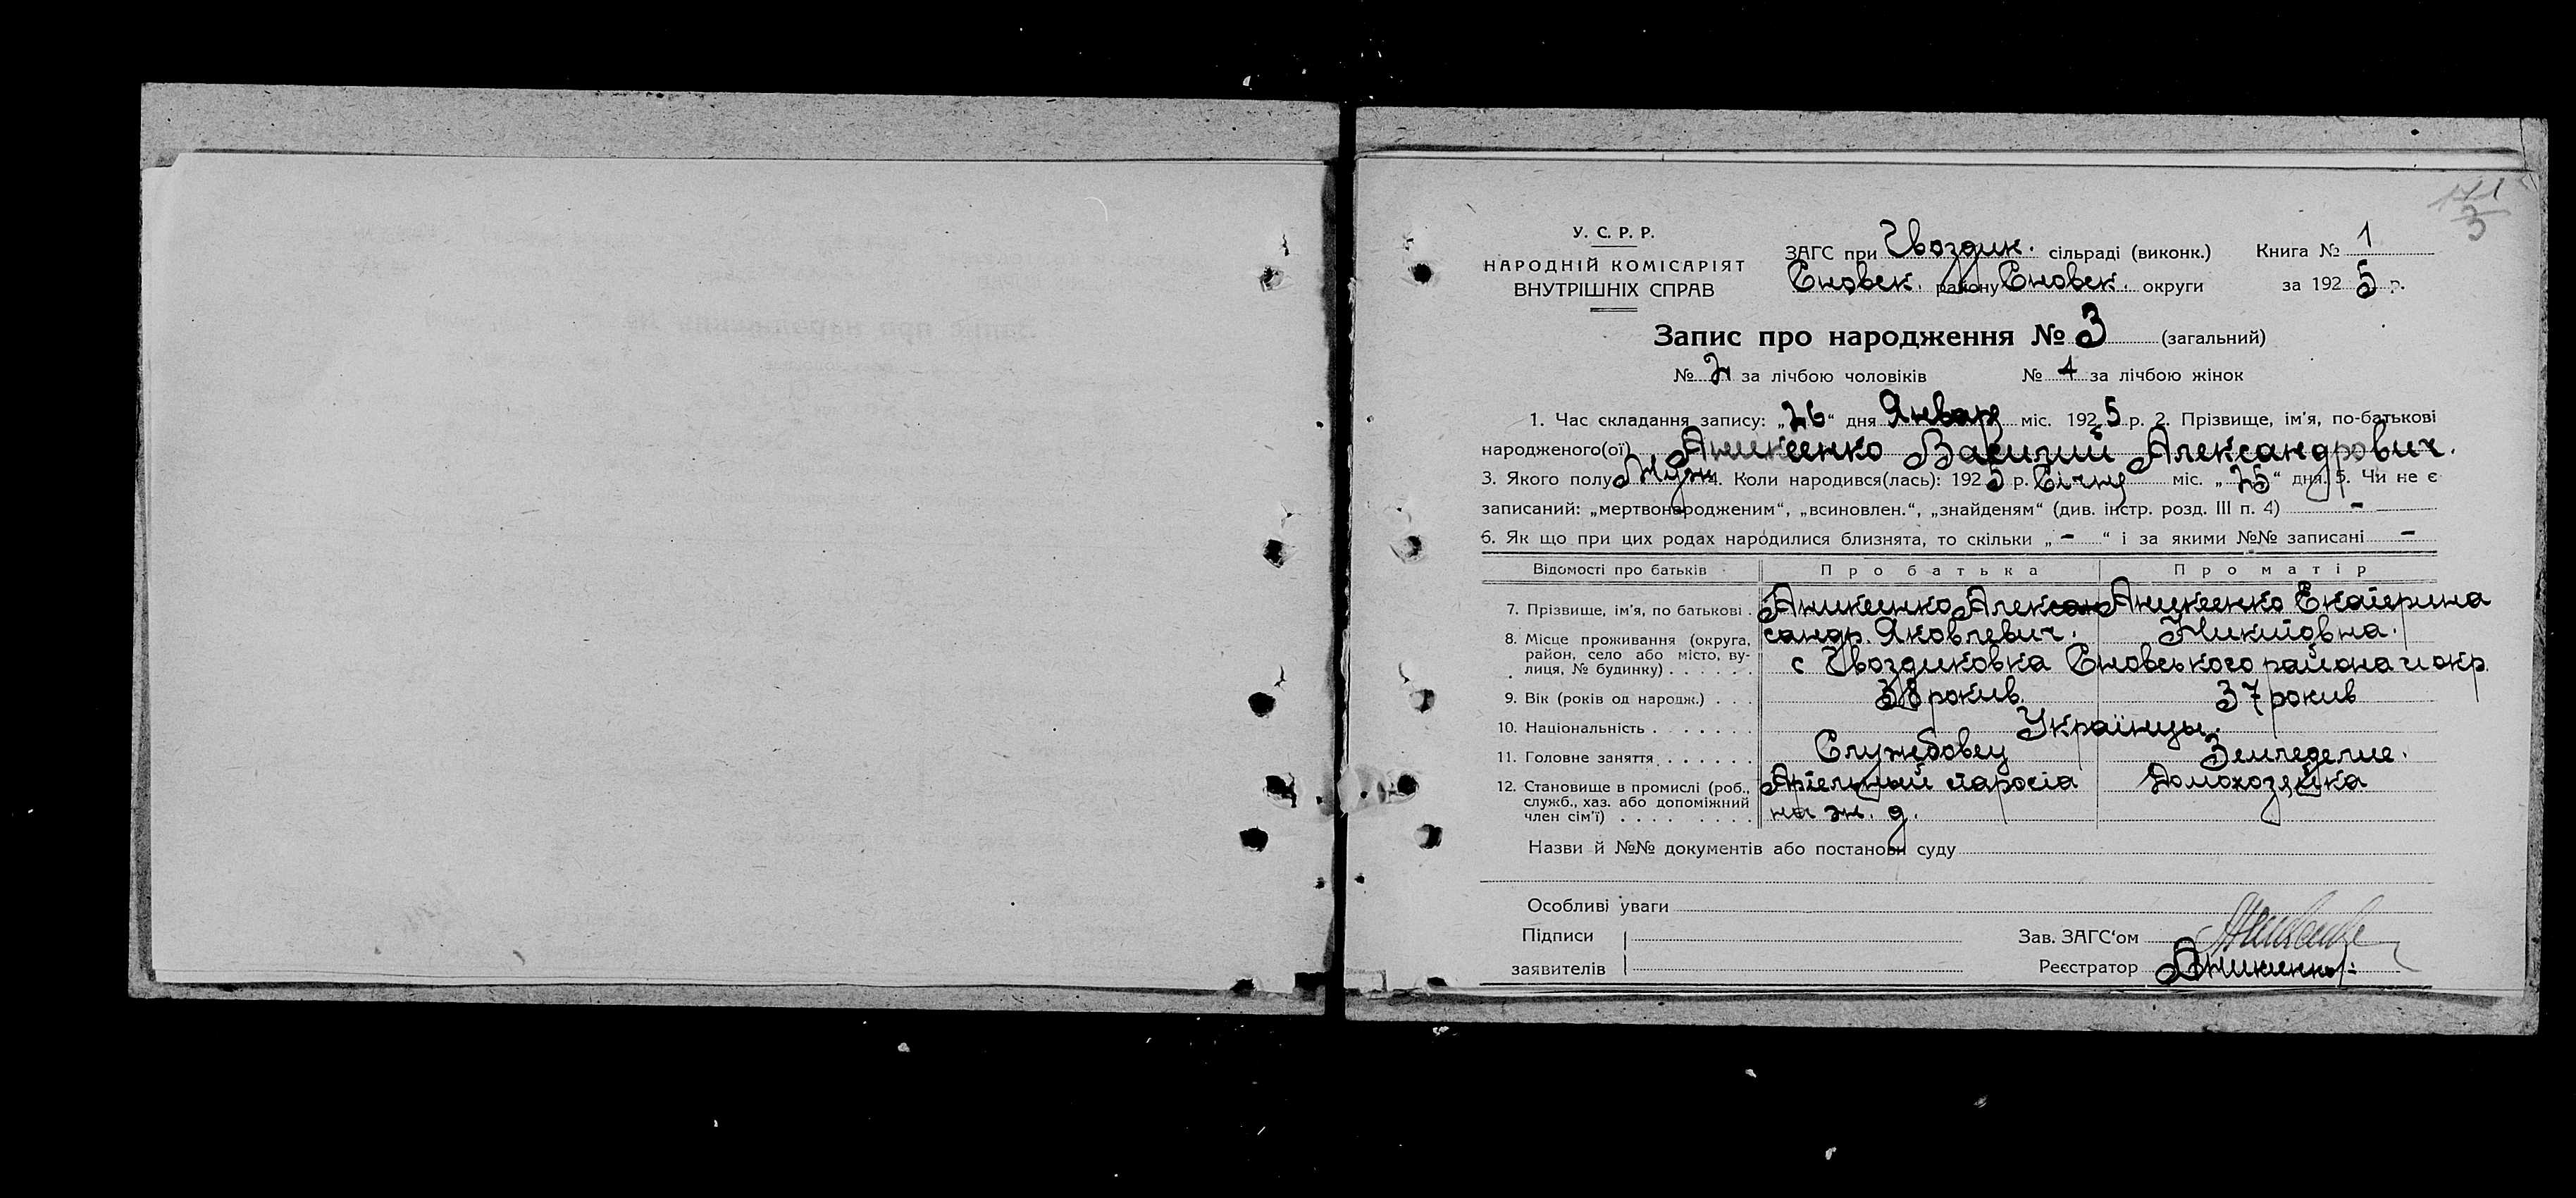 171
3
У. С. Р. Р.
НАРОДНІЙ КОМІСАРІЯТ
ВНУТРІШНІХ СПРАВ
ЗАГС при Гвоздик. сільраді (виконк.) Книга № 1
Сновск. району Сновск. округи за 1925 р.
Запис про народження № 3 (загальний)
№ 2 за лічбою чоловіків № 1 за лічбою жінок
1. Час складання запису: „26“ дня Январ міс. 1925 р. 2. Прізвище, ім'я, по-батькові
народженого(ої) Аникеенко Василий Александрович.
3. Якого полу Муж 4. Коли народився(лась): 1925 р. Січня міс. „25“ дня. 5. Чи не є
записаний: „мертвонародженим“, „всиновлен.“, „знайденям“ (див. інстр. розд. III п. 4) -
6. Як що при цих родах народилися близнята, то скільки „-“ і за якими №№ записані -
Відомості про батьків Про батька Про матір
7. Прізвище, ім'я, по батькові . Аникеенко Алек Аникеенко Екатерина
сандр. Яковлевич. Никитовна.
8. Місце проживання (округа, район, село або місто, ву-
лиця, № будинку) . . . . . . с Гвоздиковка Сновського района и окр.
9. Вік (років од народж.) . . . 38 рокив 37 рокив
10. Національність . . . . . . . Українцы.
11. Головне заняття . . . . . . Служебовец Земледелие.
12. Становище в промислі (роб., служб., хаз. або допоміжний
член сім'ї) . . . . . . . . Артельный староста Домохозяйка
на ж. д.
Назви й №№ документів або постанови суду
Особливі уваги
Підписи
заявителів
Зав. ЗАГС'ом
Реєстратор Аникеенко